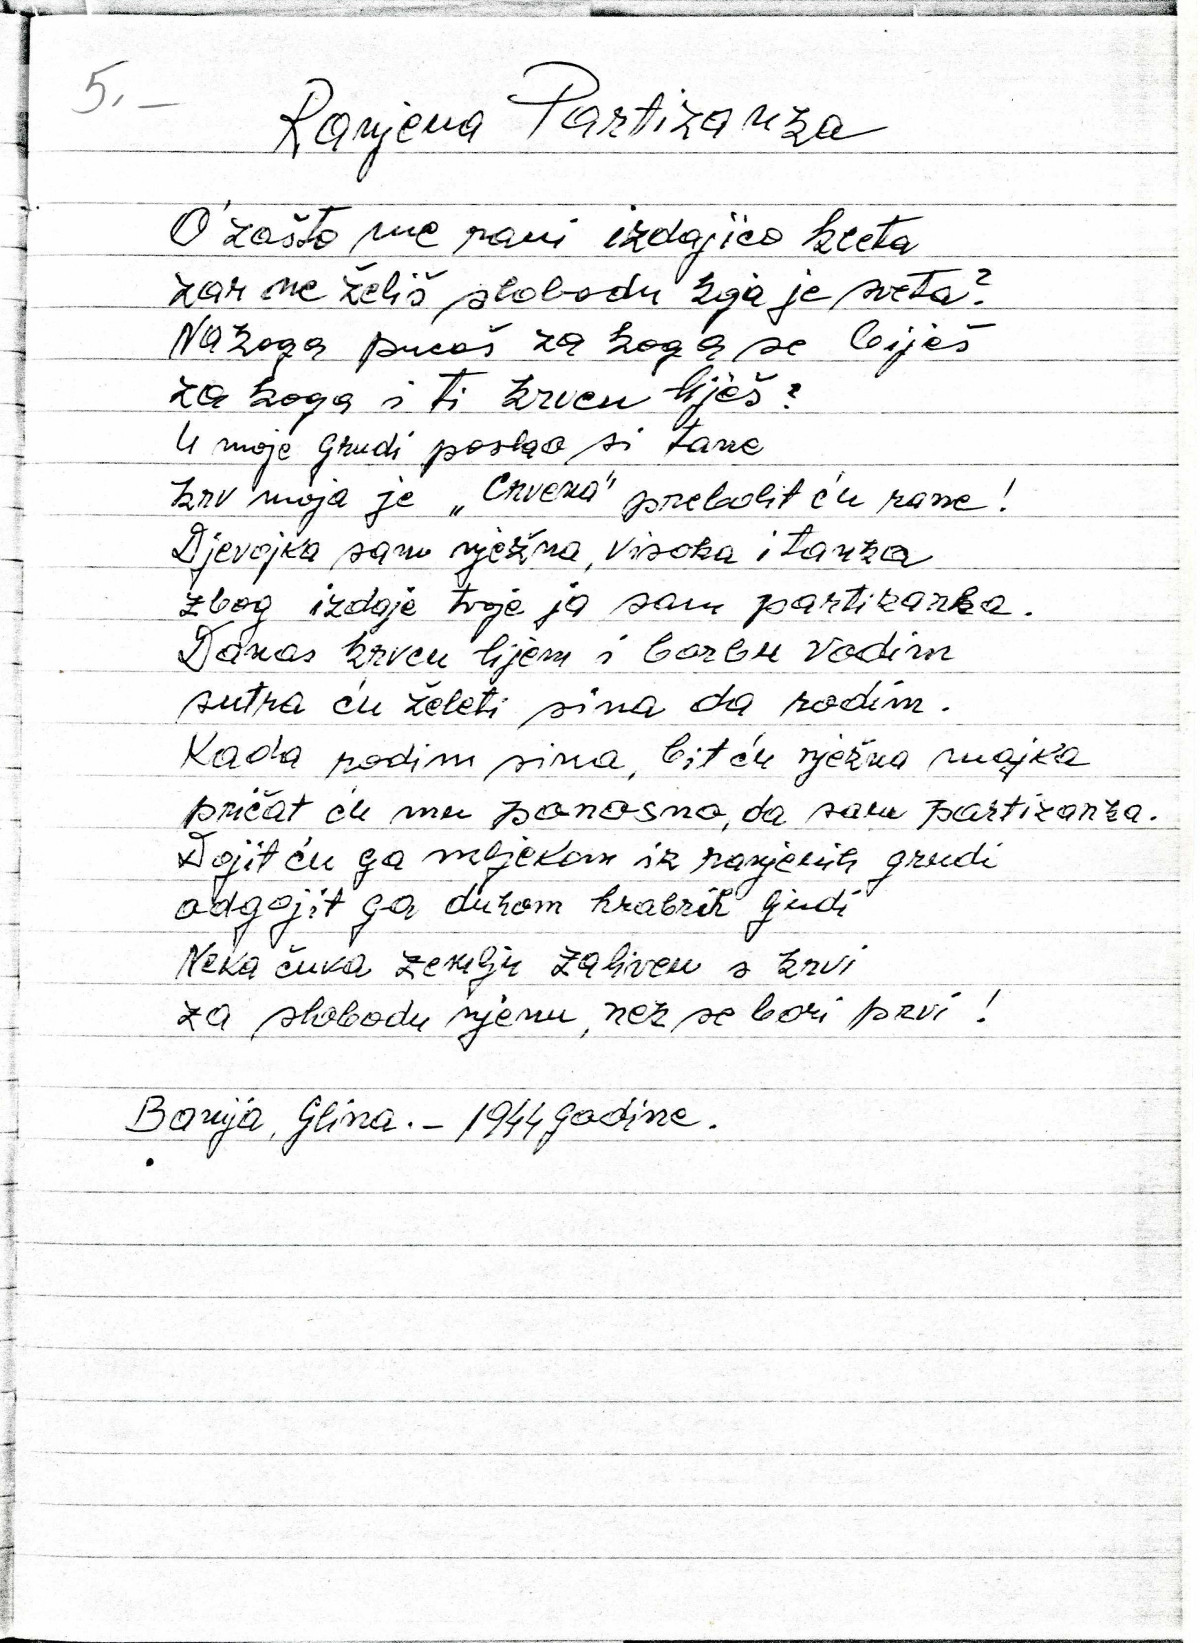 5.-
Ranjena Partizanka
O' zašto me rani izdajico kleta
zar ne želiš slobodu koja je sveta?
Na koga pucaš za koga se biješ
za koga i ti krvcu liješ?
U moje grudi poslao si tane
krv moja je „Crvena" prebolit ću rane!
Djevojka sam nježna, visoka i tanka
zbog izdaje tvoje ja sam partizanka.
Danas krvcu lijem i borbu vodim
sutra ću želeti sina da rodim.
Kada rodim sina, bit ću nježna majka
pričat ću mu ponosno, da sam partizanka.
Dojit ću ga mlijekom iz ranjenih grudi
odgojit ga duhom hrabrih ljudi
Neka čuva zemlju zalivenu s krvi
za slobodu njenu, nek se bori prvi!
Banija, Glina.- 1944 godine.